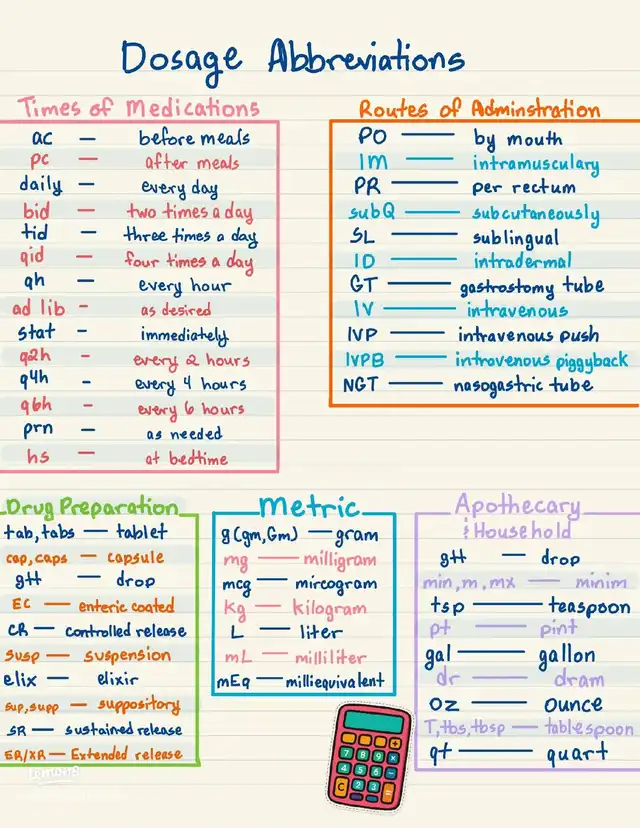 Dosage Abbreviations
Times of Medications
ac — before meals
pc — after meals
daily — every day
bid — two times a day
tid — three times a day
qid — four times a day
qh — every hour
ad lib - as desired
stat - immediately
q2h - every 2 hours
q4h - every 4 hours
q6h - every 6 hours
prn — as needed
hs — at bedtime
Routes of Adminstration
PO — by mouth
IM — intramusculary
PR — per rectum
subQ — subcutaneously
SL — sublingual
ID — intradermal
GT — gastrostomy tube
IV — intravenous
IVP — intravenous push
IVPB — intravenous piggyback
NGT — nasogastric tube
Drug Preparation
tab, tabs — tablet
cap, caps — capsule
gtt — drop
EC — enteric coated
CR — controlled release
susp — suspension
elix — elixir
sup, supp — suppository
SR — sustained release
ER/XR — Extended release
Metric
g (gm, Gm) — gram
mg — milligram
mcg — mircogram
kg — kilogram
L — liter
mL — milliliter
mEq — milliequivalent
Apothecary
& Household
gtt — drop
min, m, mx — minim
tsp — teaspoon
pt — pint
gal — gallon
dr — dram
oz — ounce
T, tbs, tbsp — tablespoon
qt — quart
7 8 9 ×
4 5 6 -
1 2 3
C
Lemon8